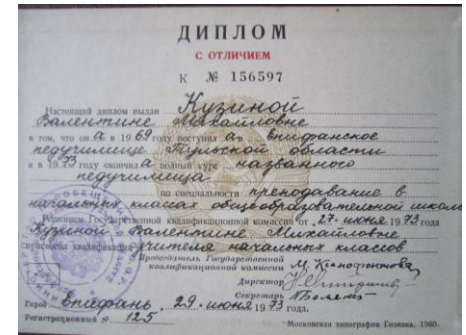 ДИПЛОМ
С ОТЛИЧИЕМ
К № 156597
Настоящий диплом выдан Кузиной
Валентине Михайловне
в том, что он а в 1969 году поступил а в Епифанское
педучилище Тульской области
и в 1973 году окончил а полный курс названного
педучилища
по специальности преподавание в
начальных классах общеобразовательной школы
Решением Государственной квалификационной комиссии от 27. июня 1973 года
Кузиной Валентине Михайловне
присвоена квалификация учителя начальных классов
Председатель Государственной
квалификационной комиссии
Директор
Секретарь
Город Епифань, 29. июня 1973 года.
Регистрационный № 125
Московская типография Гознака, 1960.